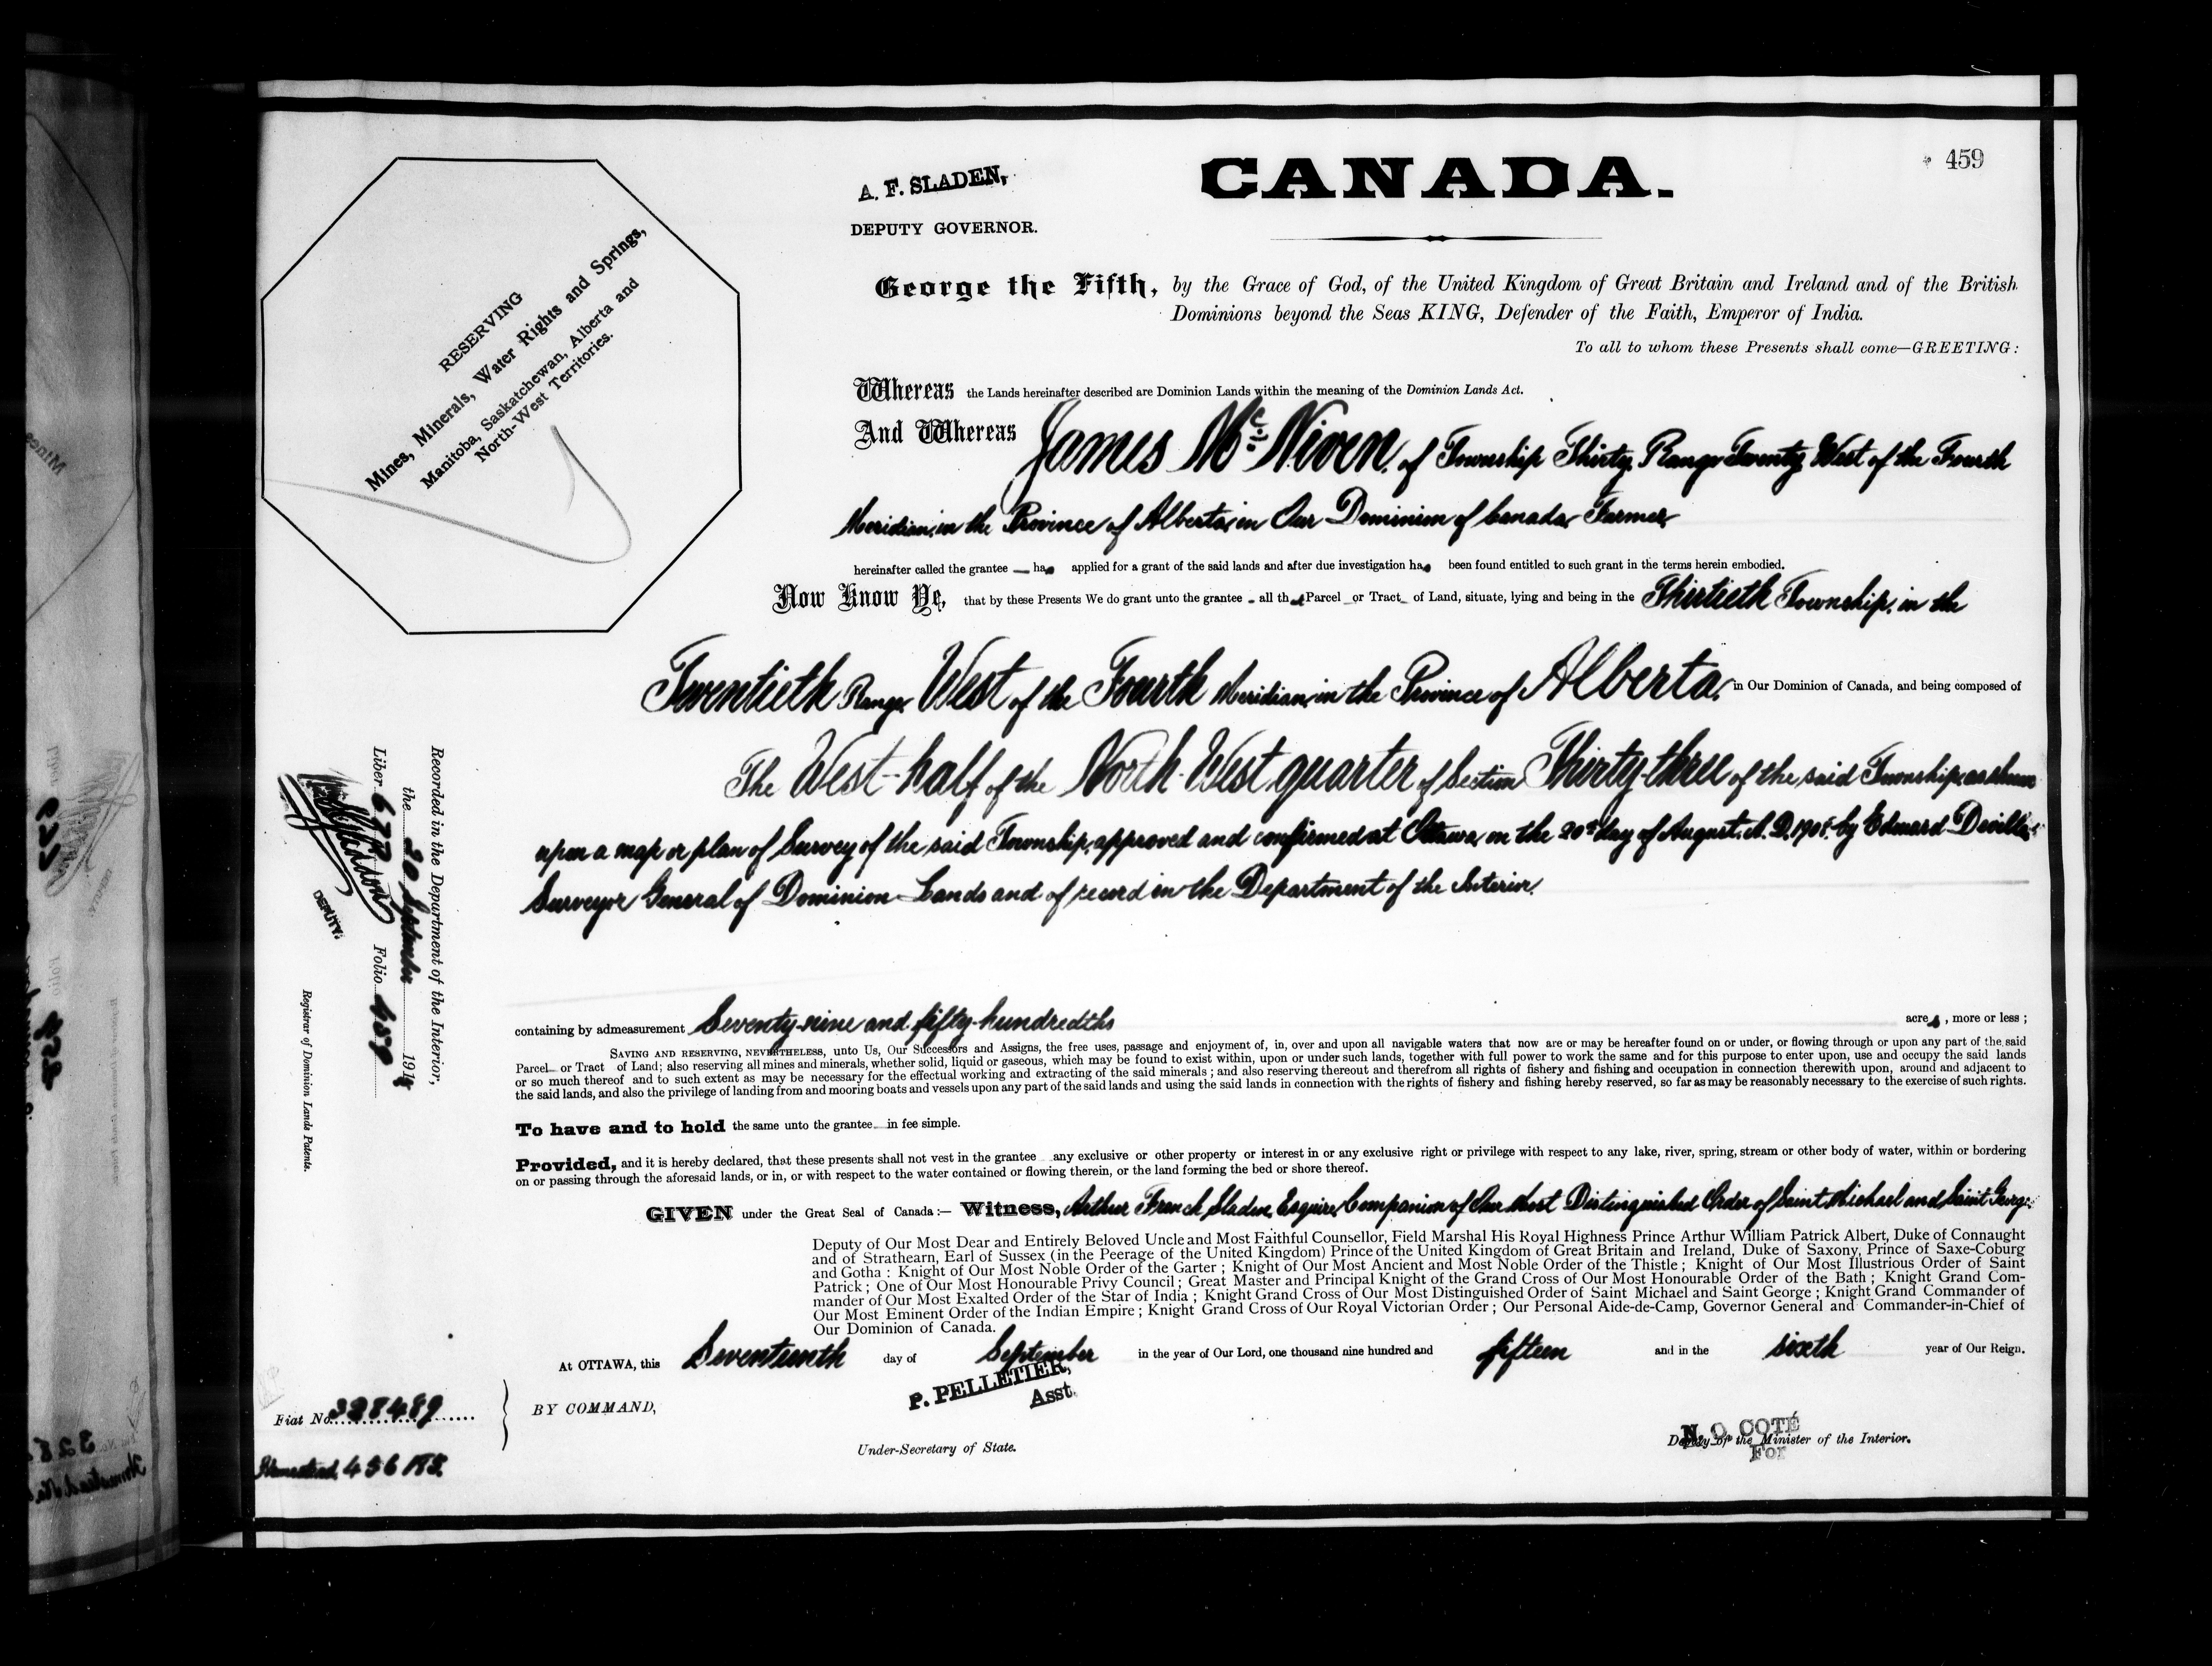 459
A. F. SLADEN,
DEPUTY GOVERNOR.
CANADA.
RESERVING
Mines, Minerals, Water Rights and Springs,
Manitoba, Saskatchewan, Alberta and
North-West Territories.
George the Fifth, by the Grace of God, of the United Kingdom of Great Britain and Ireland and of the British
Dominions beyond the Seas KING, Defender of the Faith, Emperor of India.
To all to whom these Presents shall come—GREETING:
Whereas the Lands hereinafter described are Dominion Lands within the meaning of the Dominion Lands Act.
And Whereas James Mc Niven, of Township Thirty, Range Twenty West of the Fourth
Meridian, in the Province of Alberta, in Our Dominion of Canada, Farmer,
hereinafter called the grantee — has applied for a grant of the said lands and after due investigation has been found entitled to such grant in the terms herein embodied.
Now Know Ye, that by these Presents We do grant unto the grantee - all that Parcel or Tract of Land, situate, lying and being in the Thirtieth Township, in the
Twentieth Range, West of the Fourth Meridian, in the Province of Alberta, in Our Dominion of Canada, and being composed of
The West-half of the North-West quarter of Section Thirty-three of the said Township, as shown
upon a map or plan of Survey of the said Township, approved and confirmed at Ottawa, on the 20th day of August, A. D. by Edouard Deville,
Surveyor General of Dominion Lands and of record in the Department of the Interior.
containing by admeasurement Seventy-nine and fifty-hundredths acres, more or less;
SAVING AND RESERVING, NEVERTHELESS, unto Us, Our Successors and Assigns, the free uses, passage and enjoyment of, in, over and upon all navigable waters that now are or may be hereafter found on or under, or flowing through or upon any part of the said
Parcel or Tract of Land; also reserving all mines and minerals, whether solid, liquid or gaseous, which may be found to exist within, upon or under such lands, together with full power to work the same and for this purpose to enter upon, use and occupy the said lands
or so much thereof and to such extent as may be necessary for the effectual working and extracting of the said minerals; and also reserving thereout and therefrom all rights of fishery and fishing and occupation in connection therewith upon, around and adjacent to
the said lands, and also the privilege of landing from and mooring boats and vessels upon any part of the said lands and using the said lands in connection with the rights of fishery and fishing hereby reserved, so far as may be reasonably necessary to the exercise of such rights.
To have and to hold the same unto the grantee in fee simple.
Provided, and it is hereby declared, that these presents shall not vest in the grantee any exclusive or other property or interest in or any exclusive right or privilege with respect to any lake, river, spring, stream or other body of water, within or bordering
on or passing through the aforesaid lands, or in, or with respect to the water contained or flowing therein, or the land forming the bed or shore thereof.
GIVEN under the Great Seal of Canada:— Witness, Arthur French Sladen, Esquire, Companion of Our Most Distinguished Order of Saint Michael and Saint George,
Deputy of Our Most Dear and Entirely Beloved Uncle and Most Faithful Counsellor, Field Marshal His Royal Highness Prince Arthur William Patrick Albert, Duke of Connaught
and of Strathearn, Earl of Sussex (in the Peerage of the United Kingdom) Prince of the United Kingdom of Great Britain and Ireland, Duke of Saxony, Prince of Saxe-Coburg
and Gotha: Knight of Our Most Noble Order of the Garter; Knight of Our Most Ancient and Most Noble Order of the Thistle; Knight of Our Most Illustrious Order of Saint
Patrick; One of Our Most Honourable Privy Council; Great Master and Principal Knight of the Grand Cross of Our Most Honourable Order of the Bath; Knight Grand Com-
mander of Our Most Exalted Order of the Star of India; Knight Grand Cross of Our Most Distinguished Order of Saint Michael and Saint George; Knight Grand Commander of
Our Most Eminent Order of the Indian Empire; Knight Grand Cross of Our Royal Victorian Order; Our Personal Aide-de-Camp, Governor General and Commander-in-Chief of
Our Dominion of Canada.
At OTTAWA, this Seventeenth day of September in the year of Our Lord, one thousand nine hundred and fifteen and in the sixth year of Our Reign.
BY COMMAND,
P. PELLETIER,
Asst.
Under-Secretary of State.
N. O COTÉ
Deputy of the Minister of the Interior.
For
Recorded in the Department of the Interior,
the 20 September 191
Liber 677 Folio 459
DEPUTY.
Registrar of Dominion Lands Patents.
Fiat No. 328489
Homestead, 456185.